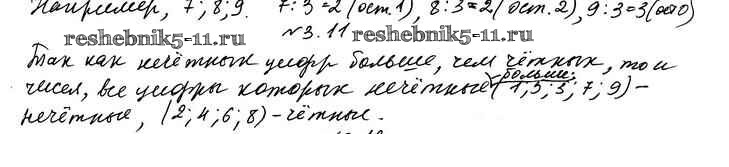 Например, 7; 8; 9. 7:3=2(ост.1), 8:3=2(ост.2), 9:3=3(ост0)
reshebnik5-11.ru reshebnik5-11.ru
№3.11
Так как нечётных цифр больше, чем чётных, то и
больше:
чисел, все цифры которых нечётные (1;5;3;7;9)-
нечётные, (2;4;6;8)-чётные.